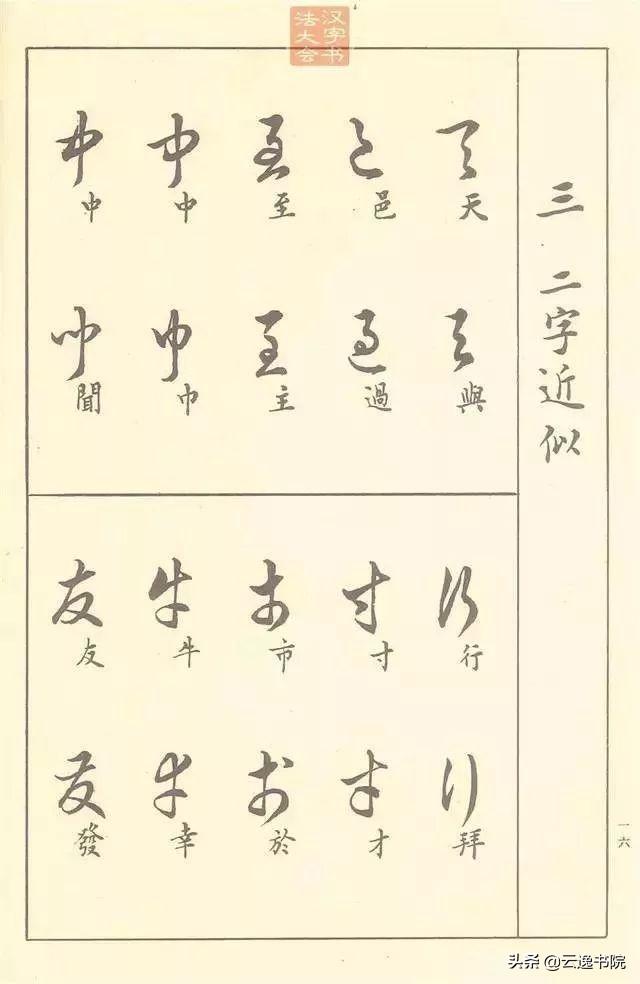 汉字书
法大会
三 二字近似
天 邑 至 中 中
與 過 主 巾 聞
行 寸 市 牛 友
拜 才 於 幸 發
一六
头条 @云逸书院